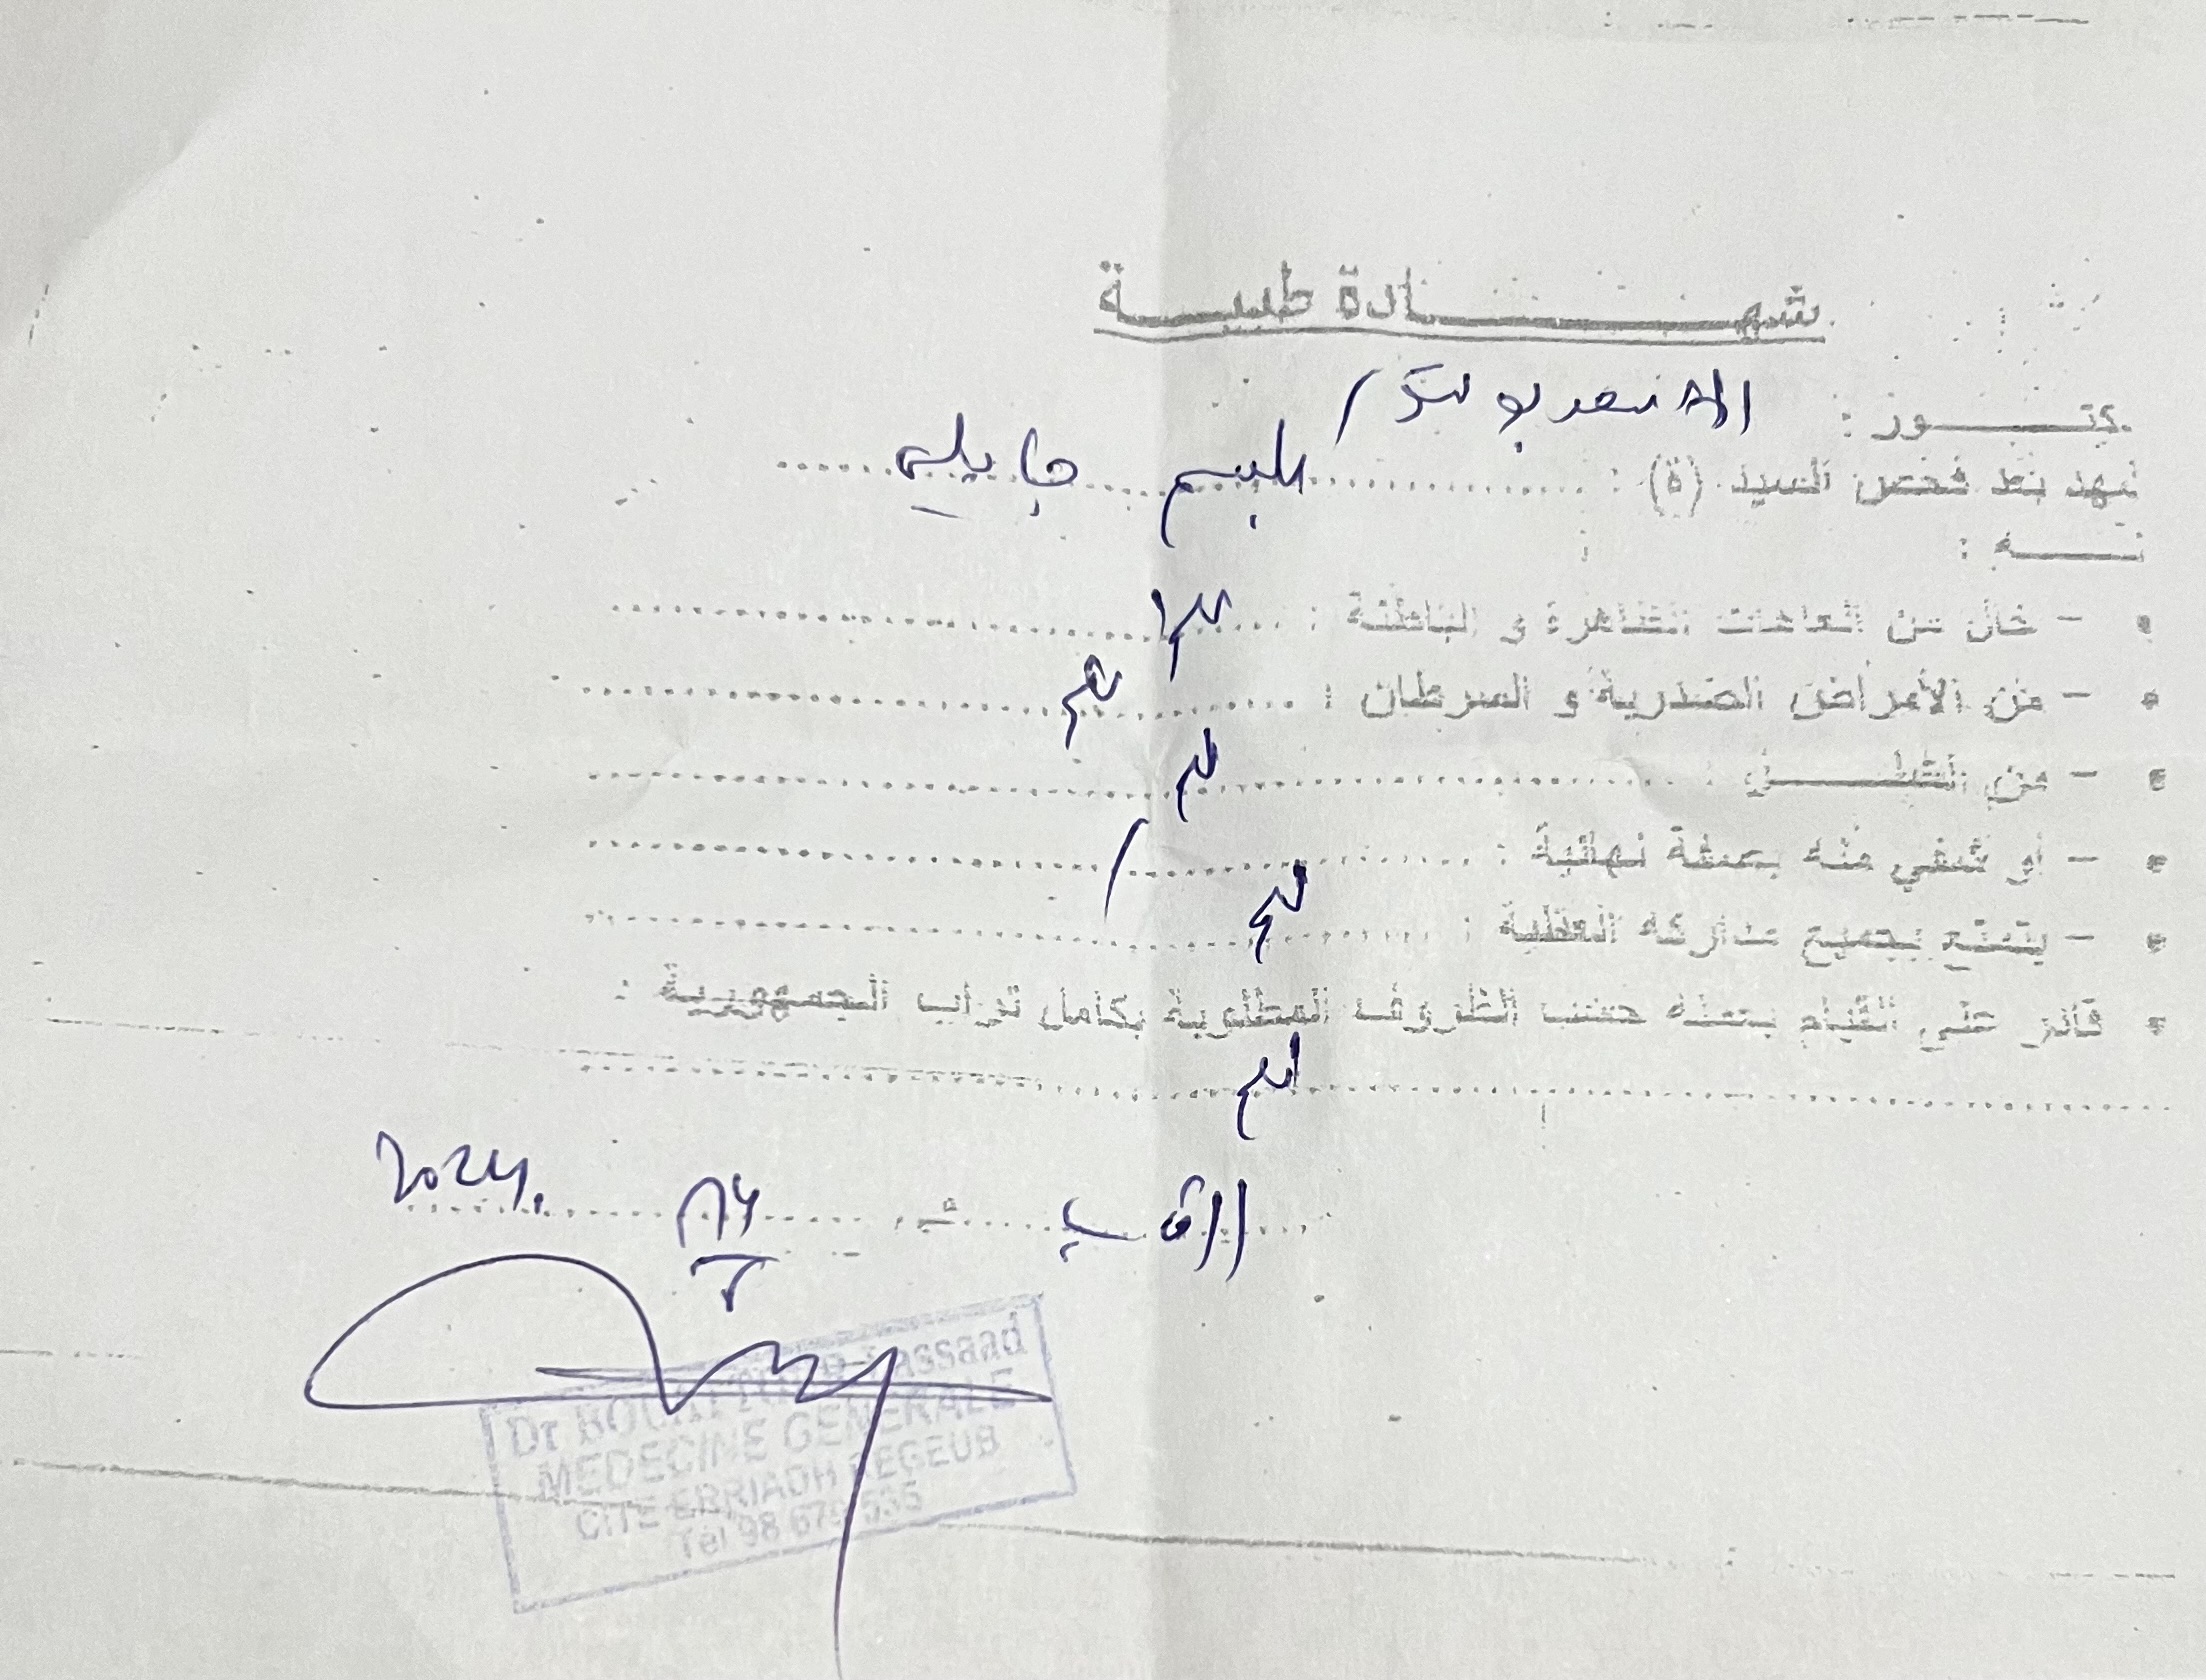 شهـــــادة طبيـــة
كتـــــور : الأسعد بو
نشهد بعد فحص السيد (ة) :
نـــــه :
- خال من العاهات الظاهرة و الباطنة : نعم
- من الأمراض الصدرية و السرطان : نعم
- من الشلـــــل : نعم
- أو شفي منه بصفة نهائية : /
- يتمتع بجميع مداركه العقلية : نعم
قادر على القيام بعمله حسب الظروف المطلوبة بكامل تراب الجمهورية :
نعم
الرقاب في 2024
Dr Lassaad
MEDECINE GENERALE
CITE ERRIADH REGEUB
Tél 98 535